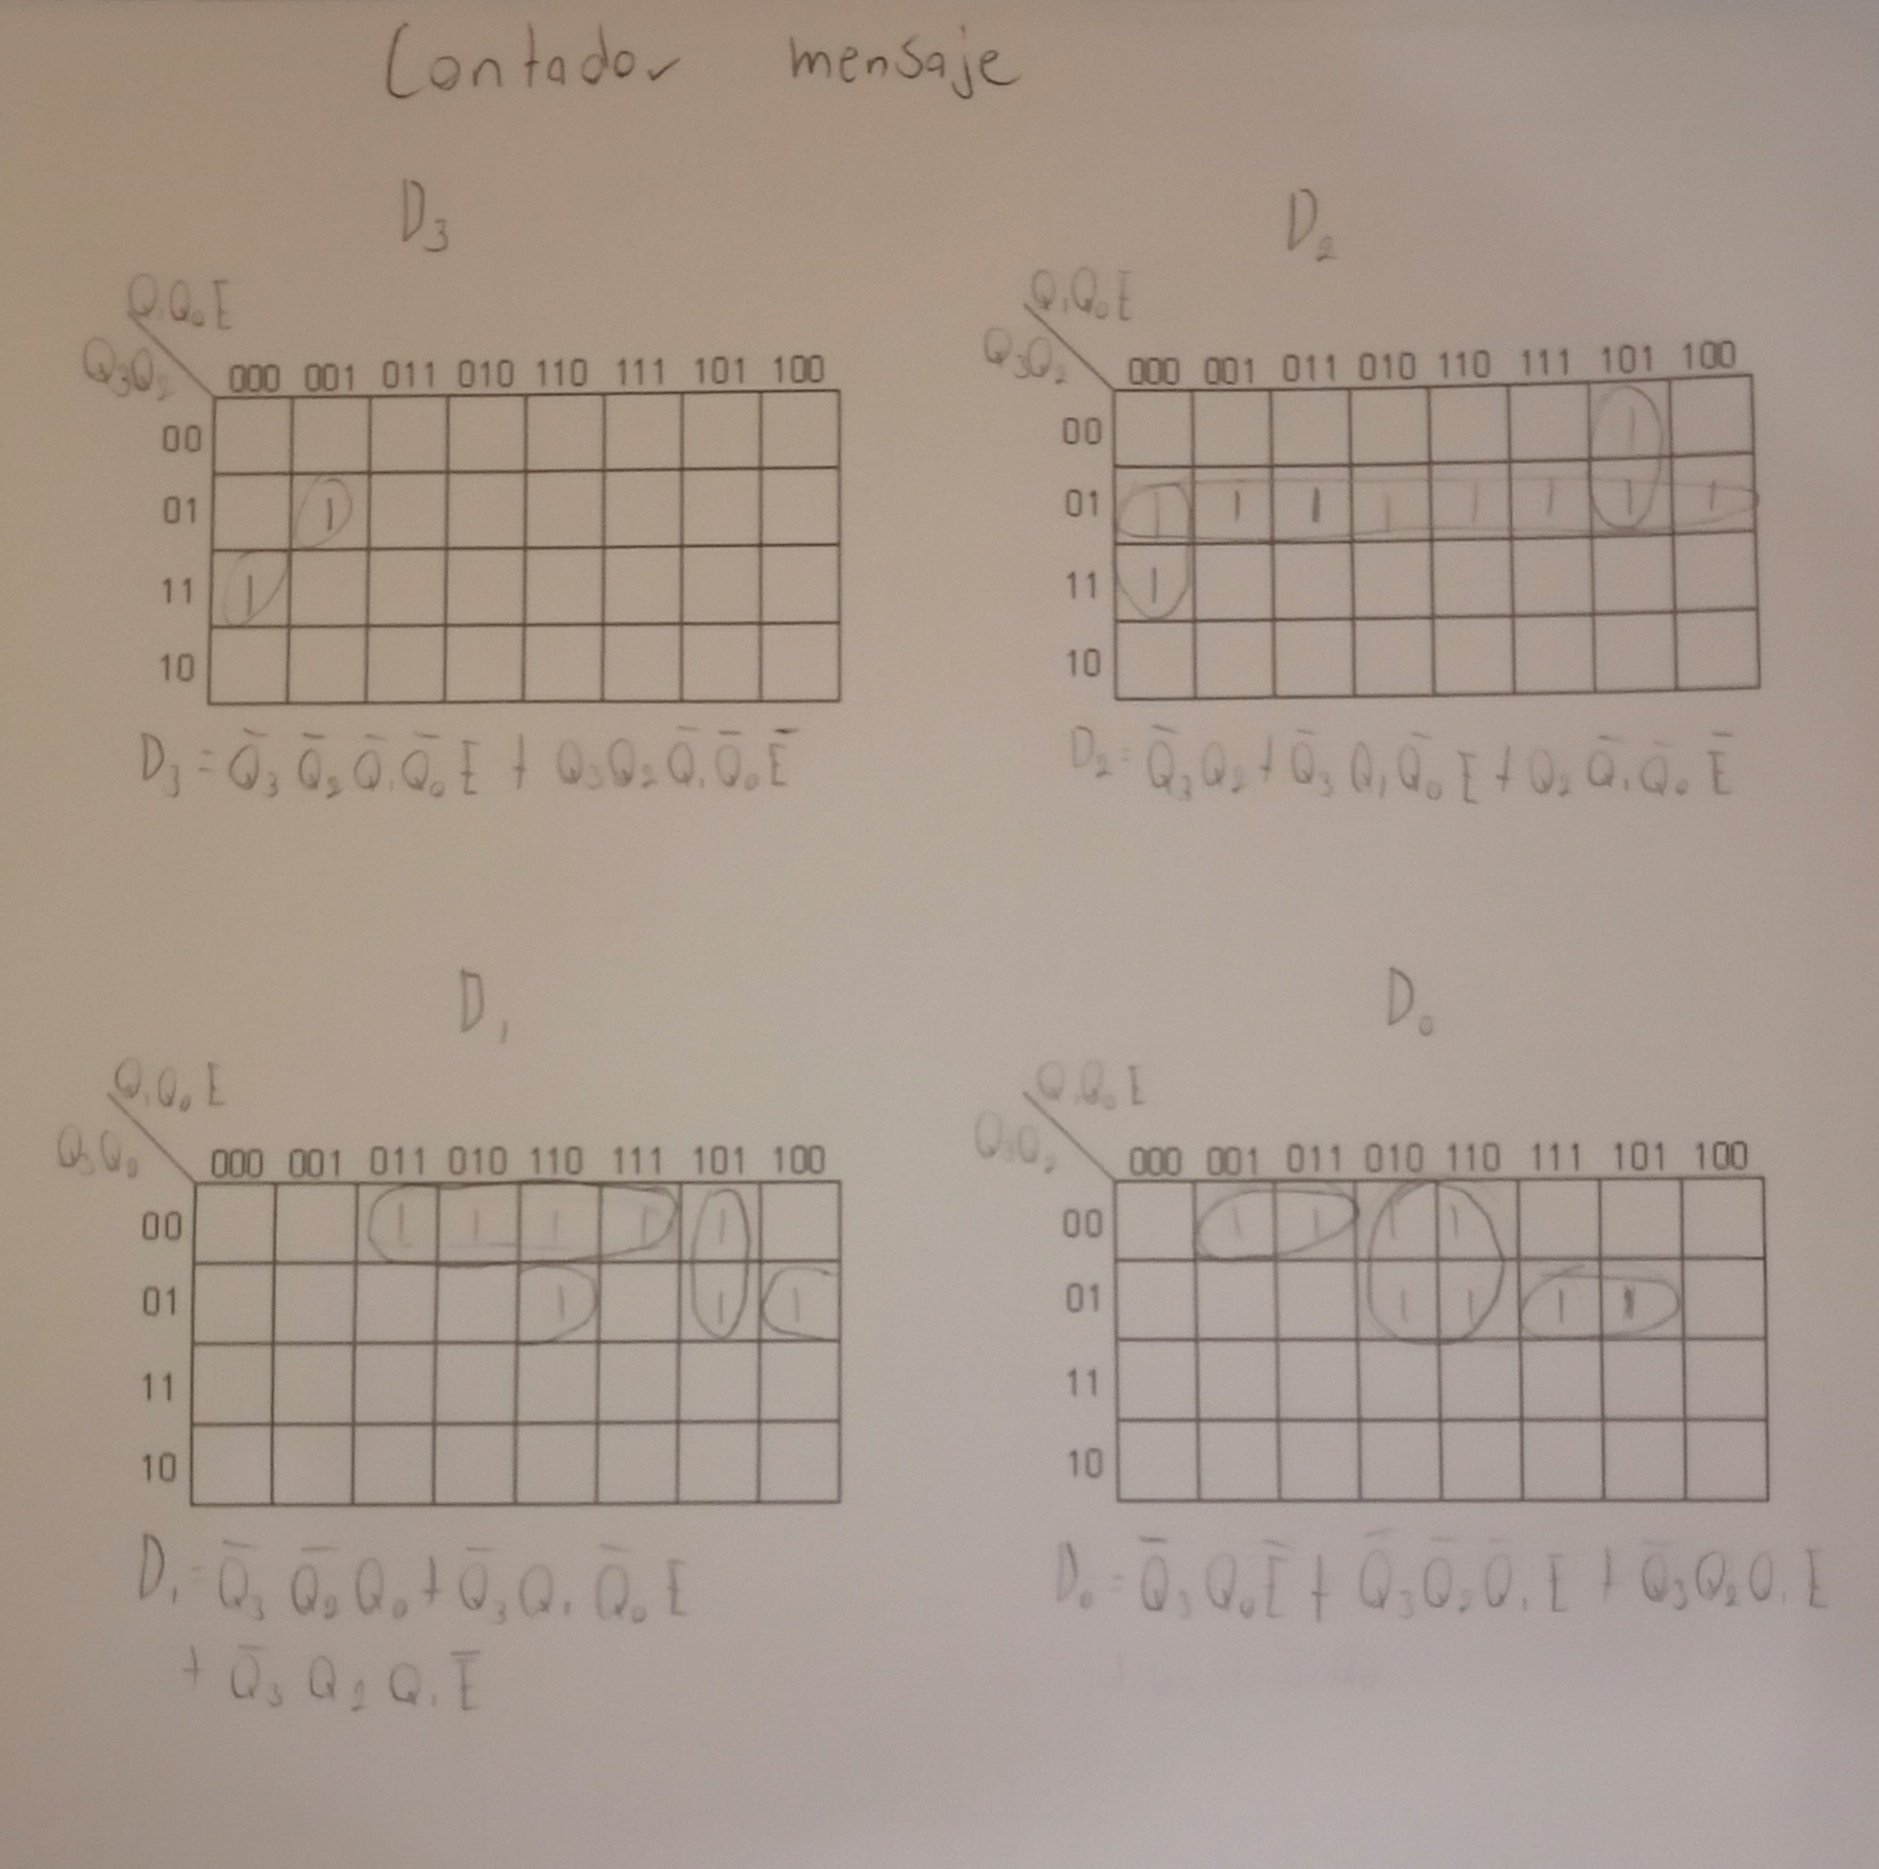 Contador mensaje
D₃
Q₁Q₀E
Q₃Q₂ 000 001 011 010 110 111 101 100
00
01 1
11 1
10
D₃ = Q̅₃ Q̅₂ Q̅₁ Q̅₀ E + Q₃Q₂ Q̅₁ Q̅₀ E̅
D₂
Q₁Q₀E
Q₃Q₂ 000 001 011 010 110 111 101 100
00 1
01 1 1 1 1 1 1 1 1
11 1
10
D₂ = Q̅₃Q₂ + Q̅₃ Q₁ Q̅₀ E + Q₂ Q̅₁ Q̅₀ E̅
D₁
Q₁Q₀E
Q₃Q₀ 000 001 011 010 110 111 101 100
00 1 1 1 1 1
01 1 1 1
11
10
D₁ = Q̅₃ Q̅₂ Q₀ + Q̅₃ Q₁ Q̅₀ E
+ Q̅₃ Q₂ Q₁ E̅
D₀
Q₁Q₀E
Q₃Q₂ 000 001 011 010 110 111 101 100
00 1 1 1 1
01 1 1 1 1
11
10
D₀ = Q̅₃ Q₀E̅ + Q̅₃Q̅₂Q̅₁E + Q̅₃Q₂Q₁E